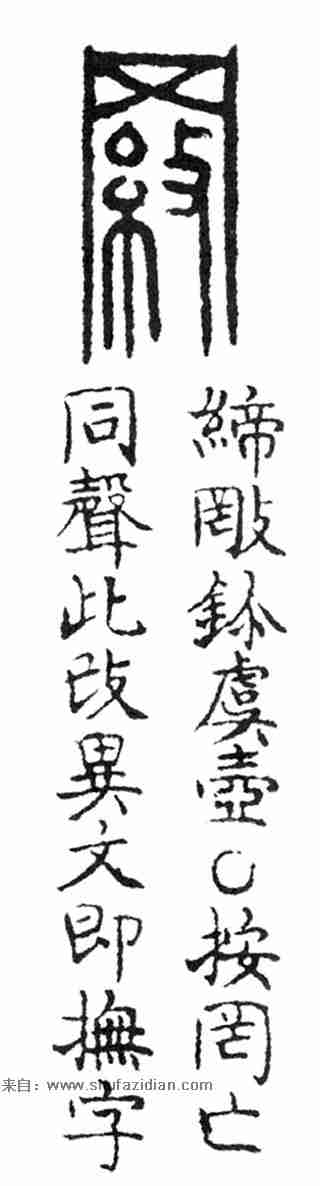 締鉨虞壺〇按罔亡
同聲此異文即撫字
来自：www.shufazidian.com